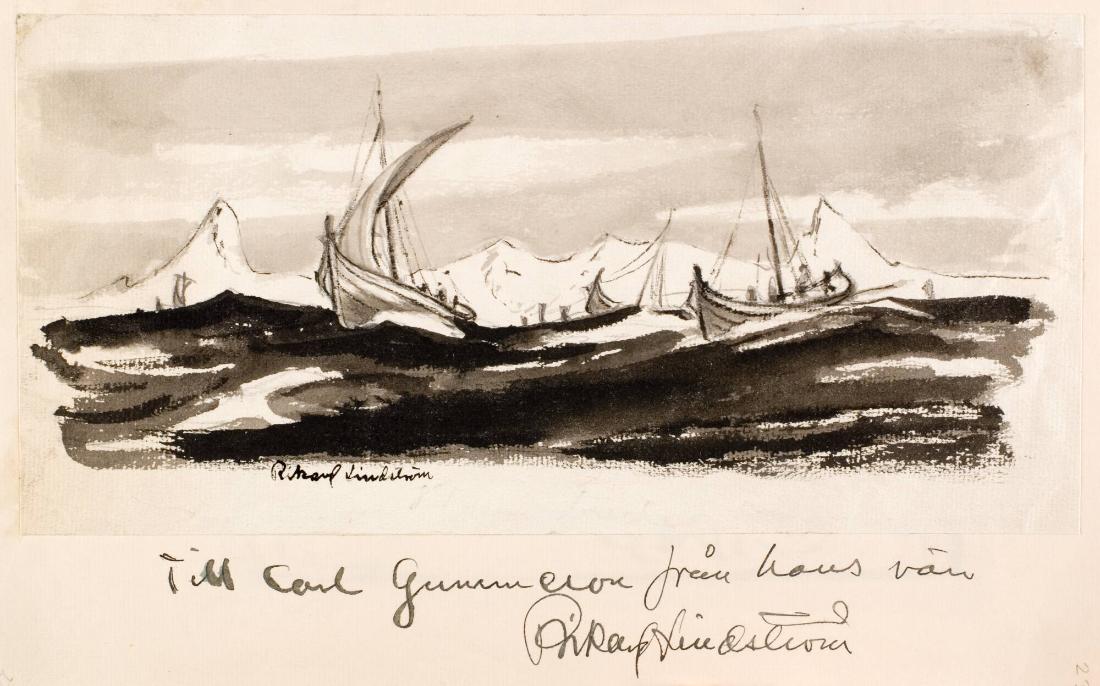 Rikard Lindström
Till Carl Gunnarson från hans vän
Rikard Lindström